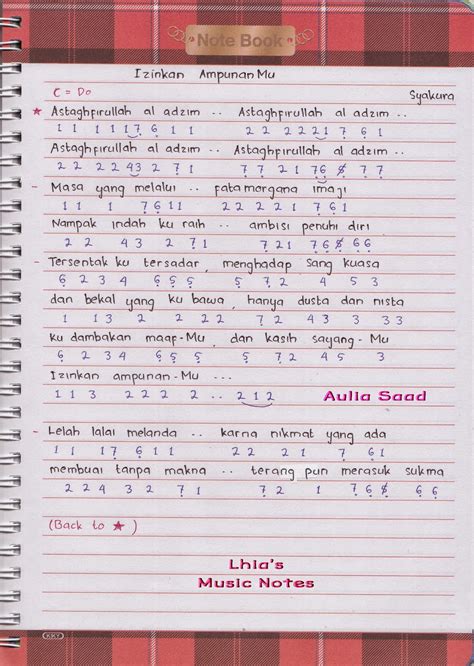 Note Book
Izinkan Ampunan Mu
C = Do Syakura
★ Astaghfirullah al adzim .. Astaghfirullah al adzim ..
1 1 1 1 1 7 6 1 1 2 2 2 2 2 1 7 6 1
Astaghfirullah al adzim .. Astaghfirullah al adzim ..
2 2 2 2 43 2 7 1 7 7 2 1 76 5 7 7
- Masa yang melalui .. fatamorgana imaji
1 1 1 1 7 6 1 1 2 2 2 2 1 7 6 1
Nampak indah ku raih .. ambisi penuhi diri
2 2 4 3 2 7 1 7 2 1 7 6 5 6 6
- Tersentak ku tersadar, menghadap sang kuasa
6 2 3 4 6 5 5 5 7 2 4 5 3
dan bekal yang ku bawa, hanya dusta dan nista
1 1 3 3 2 2 2 2 2 4 3 3 3 3
ku dambakan maap-Mu, dan kasih sayang-Mu
6 2 3 4 6 5 5 7 2 4 5 3
Izinkan ampunan-Mu ...
1 1 3 2 2 2 2 .. 2 1 2
Aulia Saad
- Lelah lalai melanda .. karna nikmat yang ada
1 1 1 7 6 1 1 2 2 2 1 7 6 1
membuai tanpa makna .. terang pun merasuk sukma
2 2 4 3 2 7 1 7 2 1 7 6 5 6 6
(Back to ★)
Lhia's
Music Notes
KKY